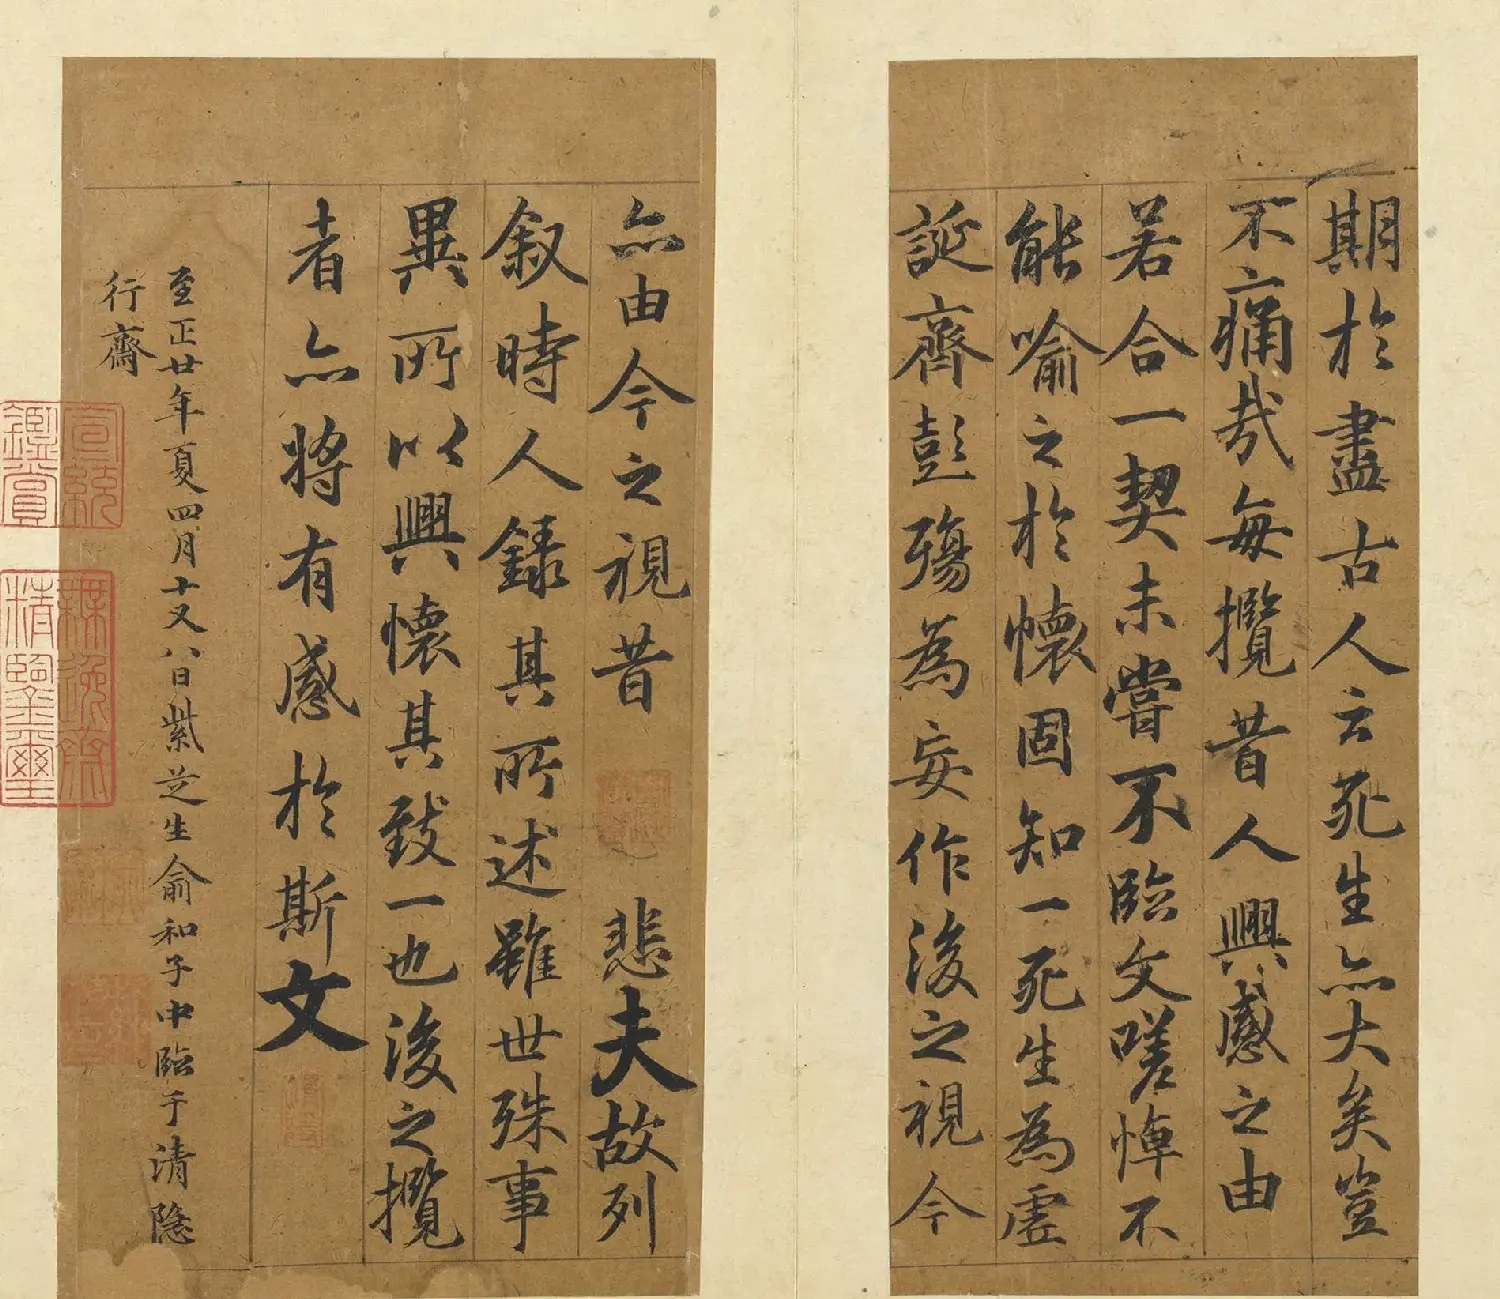 期於盡古人云死生亦大矣豈
不痛哉每攬昔人興感之由
若合一契未嘗不臨文嗟悼不
能喻之於懷固知一死生為虛
誕齊彭殤為妄作後之視今
亦由今之視昔 悲夫故列
叙時人錄其所述雖世殊事
異所以興懷其致一也後之攬
者亦將有感於斯文
至正廿年夏四月十又八日紫芝生俞和子中臨于清隱
行齋
宣統
鑑賞
無逸齋
精鑒璽